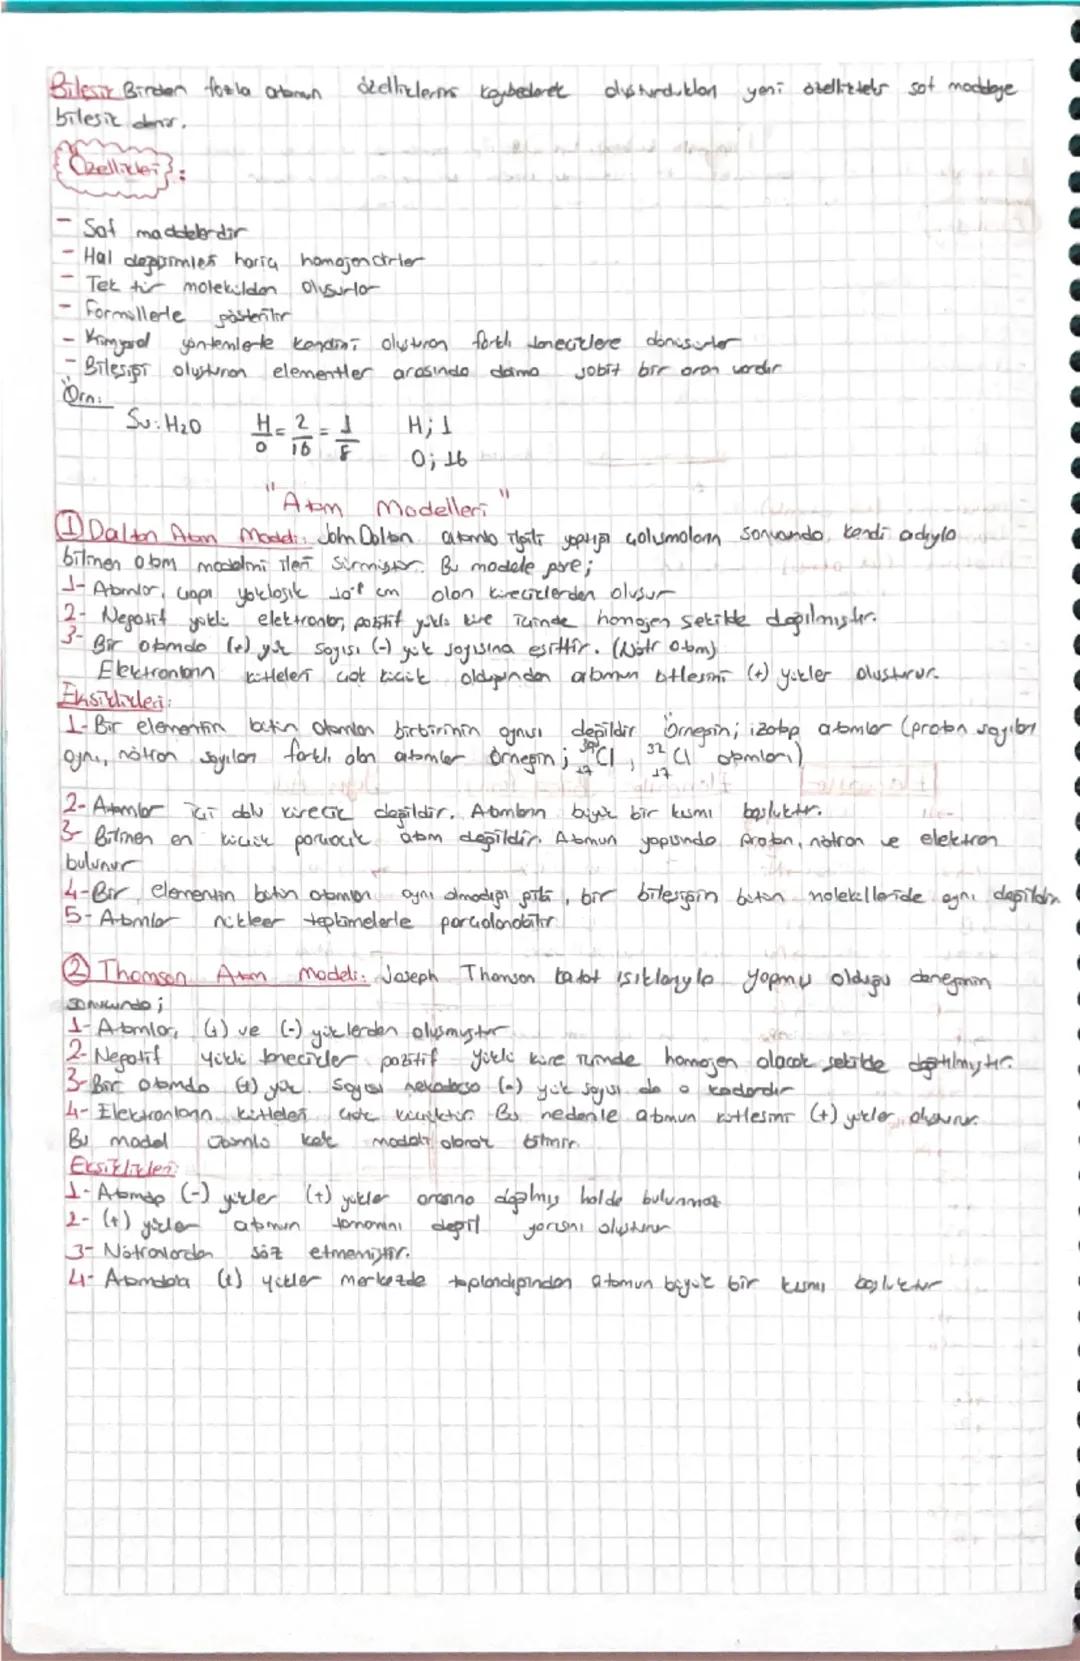 Bileşik Birden fazla atomun özelliklerini kaybederek oluşturdukları yeni özellikteki saf maddeye
bileşik denir.
Özellikleri:
- Saf maddelerdir
- Hal değişimleri hariç homojendirler
- Tek tür molekülden oluşurlar
- Formüllerle gösterilir
- Kimyasal yöntemlerle kendini oluşturan farklı taneciklere dönüşürler
- Bileşiği oluşturan elementler arasında daima sabit bir oran vardır
Örn:
Su: H2O H/O = 2/16 = 1/8 H; 1
O; 16
"Atom Modelleri"
① Dalton Atom Modeli: John Dalton atomla ilgili yaptığı çalışmaların sonucunda, kendi adıyla
bilinen atom modelini ileri sürmüştür. Bu modele göre;
1- Atomlar, çapı yaklaşık 10⁻⁸ cm olan küreciklerden oluşur
2- Negatif yüklü elektronlar, pozitif yüklü küre içinde homojen şekilde dağılmıştır.
3- Bir atomda (+) yük sayısı (-) yük sayısına eşittir. (Nötr atom)
Elektronların kütleleri çok küçük olduğundan atomun kütlesini (+) yükler oluşturur.
Eksiklikleri:
1- Bir elementin bütün atomları birbirinin aynısı değildir Örneğin; izotop atomlar (proton sayıları
aynı, nötron sayıları farklı olan atomlar Örneğin; Cl, 37 17 Cl atomları)
2- Atomlar içi dolu kürecik değildir. Atomların büyük bir kısmı boşluktur.
3- Bilinen en küçük parçacık atom değildir. Atomun yapısında proton, nötron ve elektron
bulunur
4- Bir elementin bütün atomları aynı olmadığı gibi, bir bileşiğin bütün molekülleride aynı değildir
5- Atomlar nükleer tepkimelerle parçalanabilir
② Thomson Atom Modeli: Joseph Thomson katot ışıklarıyla yapmış olduğu deneyinin
sonucunda;
1- Atomlar, (+) ve (-) yüklerden oluşmuştur
2- Negatif yüklü tanecikler pozitif yüklü küre içinde homojen olacak şekilde dağıtılmıştır.
3- Bir atomda (+) yük sayısı nekadarsa (-) yük sayısı da o kadardır
4- Elektronların kütleleri çok küçüktür. Bu nedenle atomun kütlesini (+) yükler, oluşturur.
Bu model üzümlü kek modeli olarak bilinir.
Eksiklikleri:
1- Atomda (-) yükler (+) yükler arasına dağılmış halde bulunmaz
2- (+) yükler atomun tamamını değil yarısını oluşturur
3- Nötronlardan söz etmemiştir.
4- Atomlarda (+) yükler merkezde toplandığından atomun büyük bir kısmı boşluktur